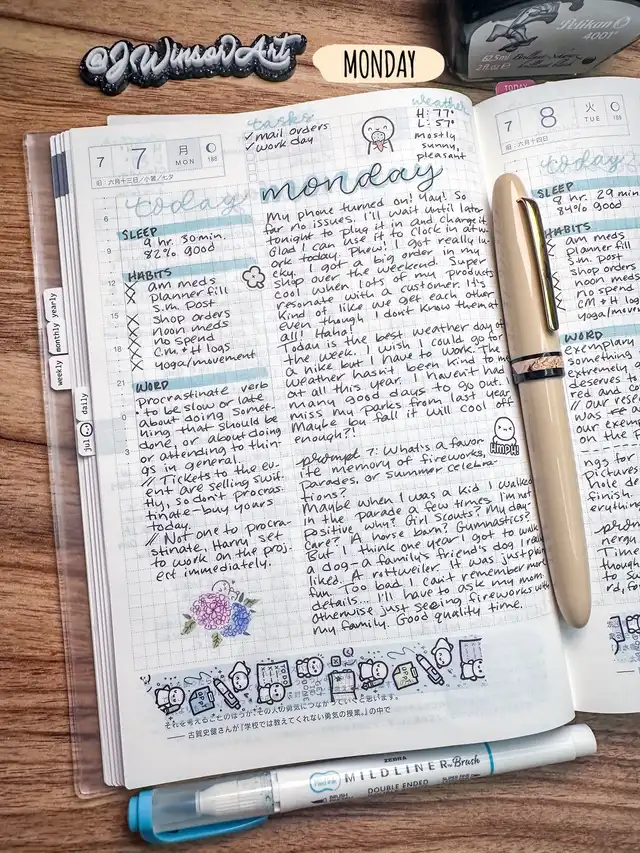 @JWinsorArt
MONDAY
Pelikan
4001
62.5ml Brillant-
2 fl oz
TODAY
7
7
月
MON
188
旧:六月十三日/小暑/七夕
tasks
✓ mail orders
✓ work day
weather
H: 77°
L: 57°
mostly
sunny,
pleasant
today
SLEEP
9 hr. 30 min.
82% good
HABITS
X am meds
X planner fill
X s.m. post
X shop orders
X noon meds
X no spend
X c.m. + H logs
X yoga/movement
WORD
procrastinate verb
: to be slow or late
about doing somet-
hing that should be
done, or about doing
or attending to thin-
gs in general.
// Tickets to the ev-
ent are selling swif-
tly, so don't procras-
tinate-buy yours
today.
// Not one to procra-
stinate, Harry set
to work on the proj-
ect immediately.
6
9
12
15
18
21
0
3
monday
My phone turned on! Yay! So
far no issues. I'll wait until late
tonight to plug it in and charge it
Glad I can use it to clock in at w-
ork today. Phew! I got really lu-
cky. I got a big order in my
shop over the weekend. Super
cool when lots of my products
resonate with a customer. It's
Kind of like we get each other
even though I don't know them at
all! Haha!
Today is the best weather day of
the week. I wish I could go for
a hike but I have to work. The
weather hasn't been kind to me
at all this year. I haven't had
many good days to go out. I
miss my parks from last year
Maybe by fall it will cool off
enough?!
HMPH!
prompt 7: What's a favor
ite memory of fireworks,
Parades, or summer celebra-
tions?
Maybe when I was a kid I walked
in the parade a few times. I'm not
Positive why? Girl Scouts? My day-
care? A horse barn? Gymnastics?
But I think one year I got to walk
a dog-a family's friend's dog I really
liked. A rottweiler. It was just plain
fun. Too bad I can't remember more
details... I'll have to ask my mom.
otherwise just seeing fireworks with
my family. Good quality time.
それを考えることのほうが、その人の勇気につながっていくと思います。
── 古賀史健さんが『学校では教えてくれない勇気の授業。』の中で
monthly yearly
weekly
jul daily
7
8
火
TUE
旧:六月十四日
today
SLEEP
9 hr. 29 min
84% good
HABITS
am meds
planner fill
s.m. post
shop orders
noon meds
no spend
c.m + H logs
yoga/movement
WORD
exemplary
something
extremely
deserves to
red and co
// Our rese
was
our exem
on the
ZEBRA
MILDLINER Brush
DOUBLE ENDED
BRUSH
SUPER FINE